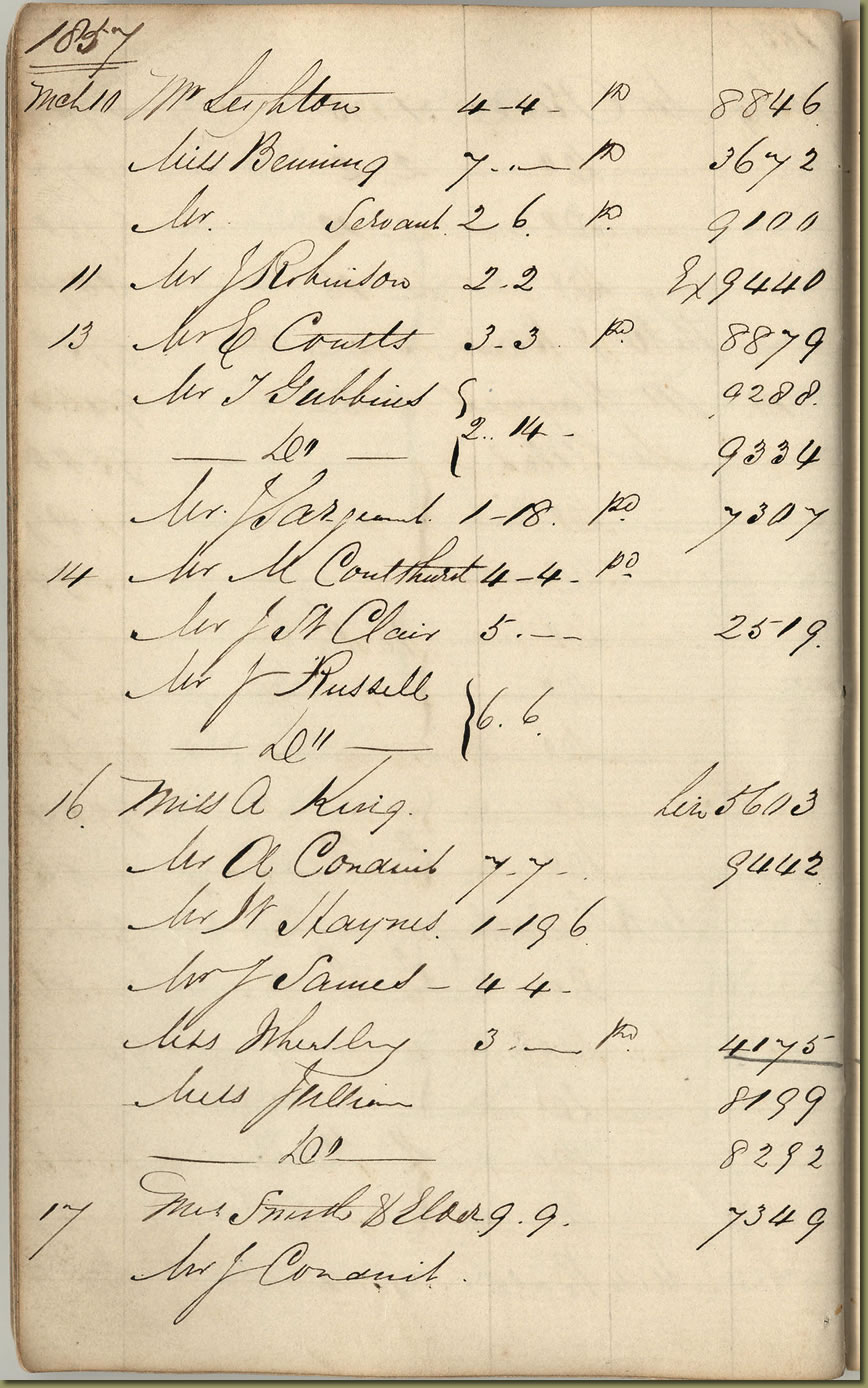 1857
Mch 10 Mr Leighton 4-4- pd 8846
Miss Benning 7.-— pd 3672
Mr. Servant 2 6. p. 9100
11 Mr J Robinson 2-2 Ex 9440
13 Mr E Coutts 3-3. pd. 8879
Mr T Gubbins 9288.
2.. 14 -
— Do — 9334
Mr. J Sargeant. 1-18. pd. 7307
14 Mr M Coulthurst 4-4- pd
Mr J St Clair 5.-— 2519.
Mr J Russell
6. 6.
— Do —
16. Miss A King. 5603
Mr A Conduit 7-7-. 9442
Mr W Haynes. 1-19 6
Mr J James - 4 4-
Miss Wheatley 3.— pd. 4175
Miss Jullian 8199
— Do — 8292
17 Smith & Elder 9. 9. 7349
Mr J Conduit.